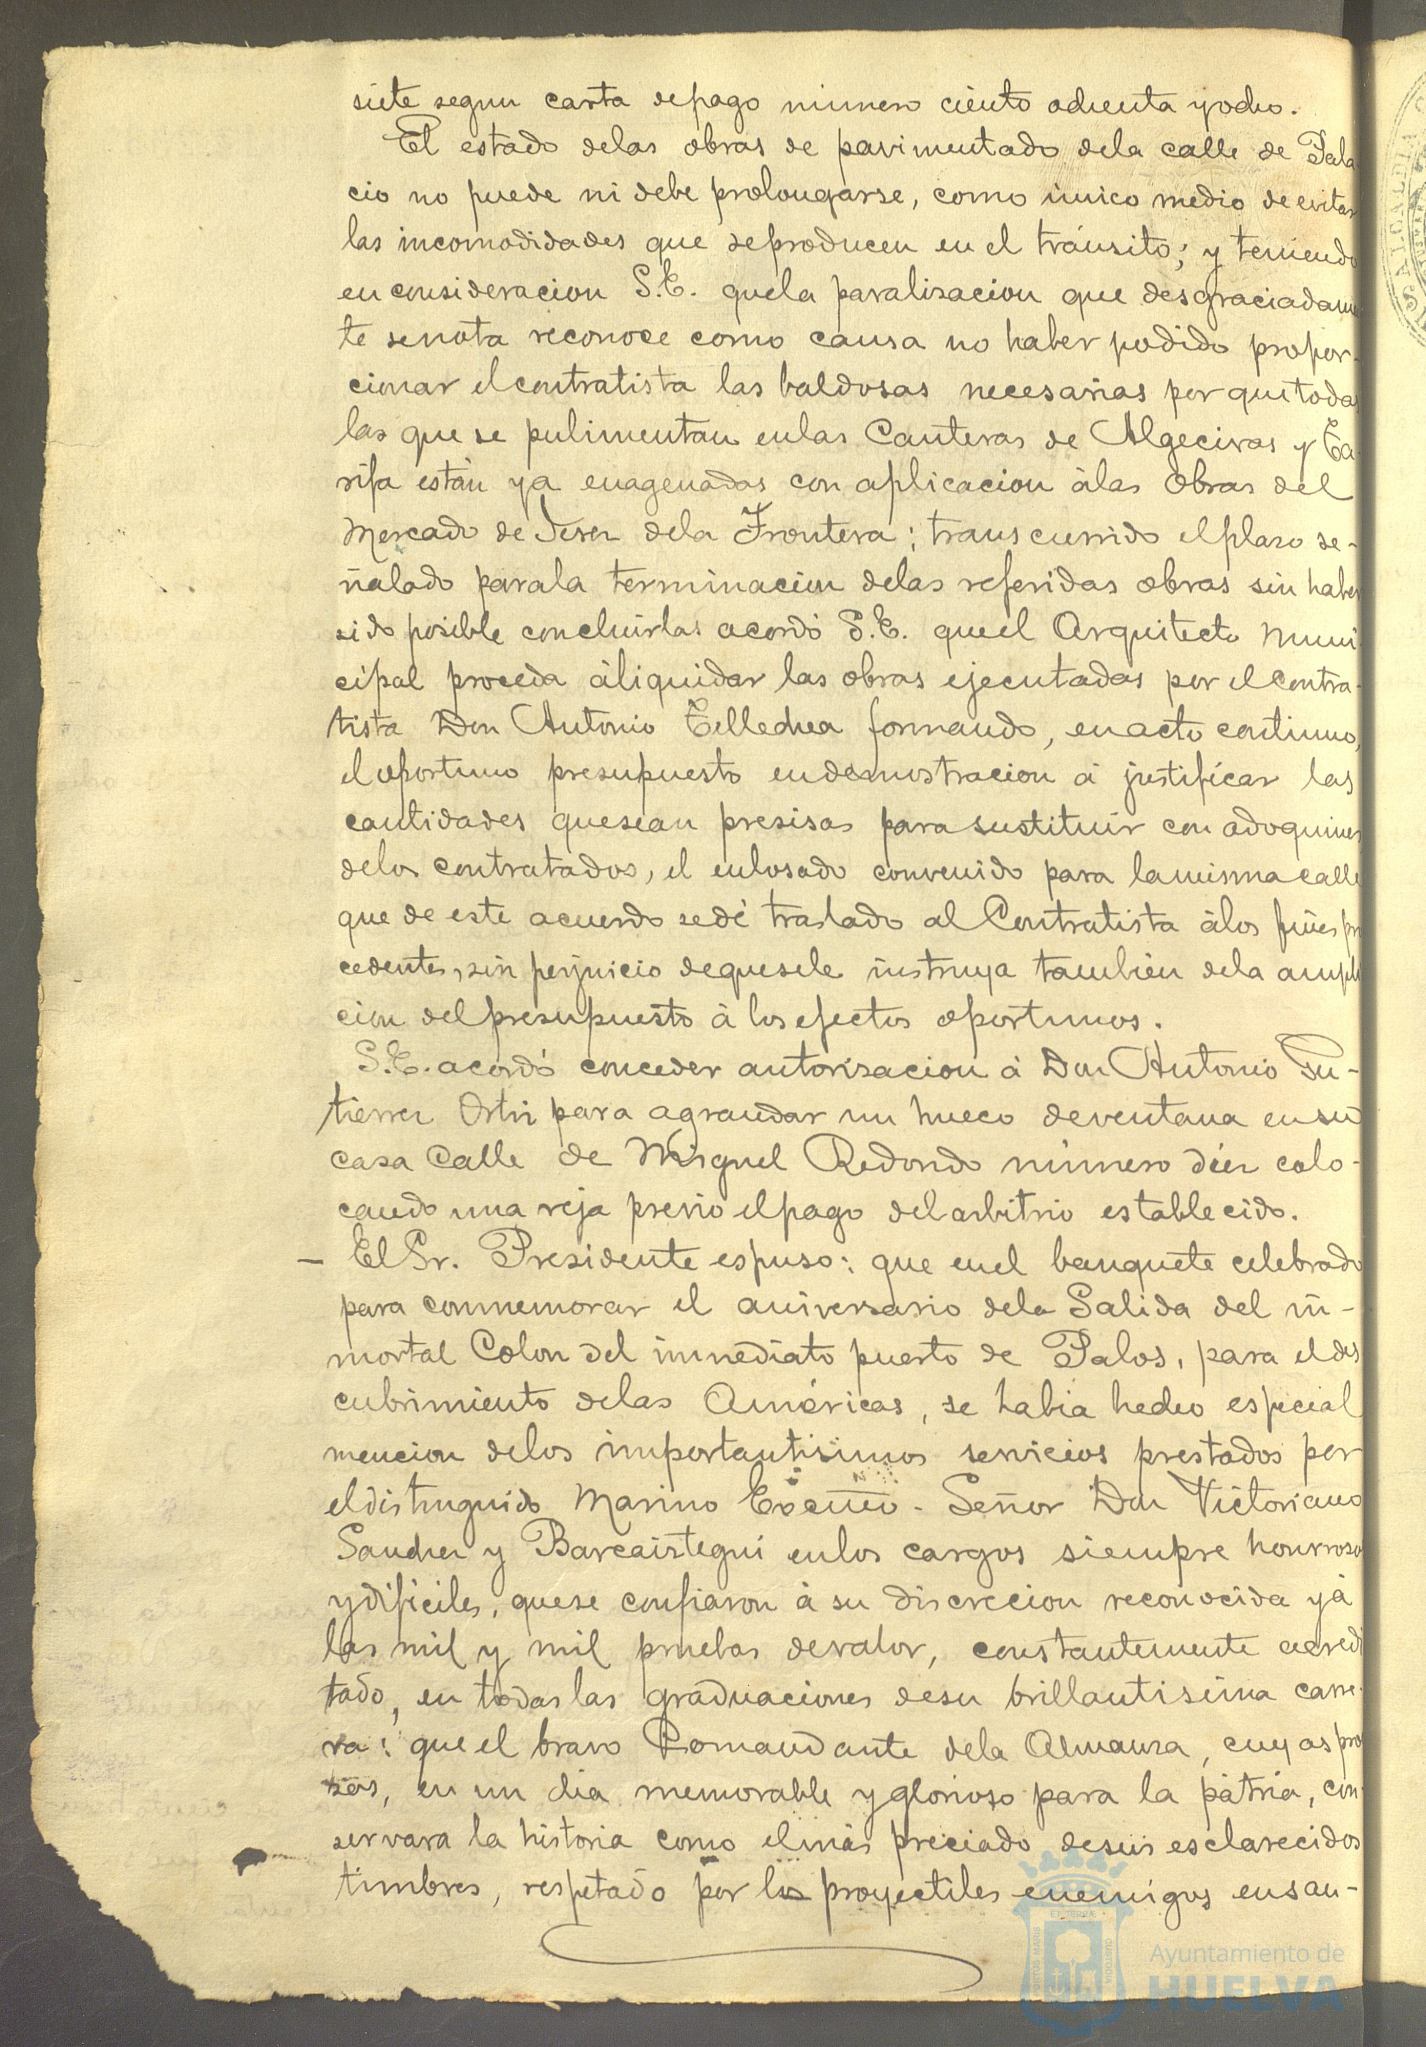 siete segun carta de pago número ciento ochenta y ocho.
El estado de las obras de pavimentado de la calle de Pala
cio no puede ni debe prolongarse, como único medio de evitar
las incomodidades que se producen en el tránsito; y teniendo
en consideracion S.E. que la paralisacion que desgraciadamen
te se nota reconoce como causa no haber podido propor-
cionar el contratista las baldosas necesarias por que todas
las que se pulimentan en las Canteras de Algeciras y Ta-
rifa están ya enagenadas con aplicacion á las obras del
Mercado de Jerez de la Frontera; transcurrido el plazo se-
ñalado para la terminacion de las referidas obras sin haber
sido posible concluirlas acordó S.E. que el Arquitecto Muni-
cipal proceda á liquidar las obras ejecutadas por el contra-
tista Don Antonio Tellechea formando, en acto continuo,
el oportuno presupuesto en demostracion á justificar las
cantidades que sean presisas para sustituir con adoquines
de los contratados, el enlosado convenido para la misma calle
que de este acuerdo se dé traslado al Contratista á los fines pro
cedentes, sin perjuicio de que se le instruya tambien de la ampli
cion del presupuesto á los efectos oportunos.
S.E. acordó conceder autorisacion á Don Antonio Gu-
tierrez Ortiz para agrandar un hueco de ventana en su
casa Calle de Misguel Redondo número diez colo-
cando una reja previo el pago del arbitrio establecido.
— El Sr. Presidente espuso: que en el banquete celebrado
para conmemorar el aniversario de la Salida del in-
mortal Colon del inmediato puerto de Palos, para el des
cubrimiento de las Américas, se habia hecho especial
mencion de los importantisimos servicios prestados por
el distinguido Marino Excmo. Señor Don Victoriano
Sanchez y Barcaiztegui en los cargos siempre honrroso
y dificiles, que se confiaron á su discrecion reconocida y á
las mil y mil pruebas de valor, constantemente acredi
tado, en todas las graduaciones de su brillantisima carre-
ra: que el bravo Comandante de la Almansa, cuyas proe
zas, en un dia memorable y glorioso para la pátria, con-
servara la historia como el más preciado de sus esclarecidos
timbres, respetado por los proyectiles enemigos en san-
Ayuntamiento de
HUELVA